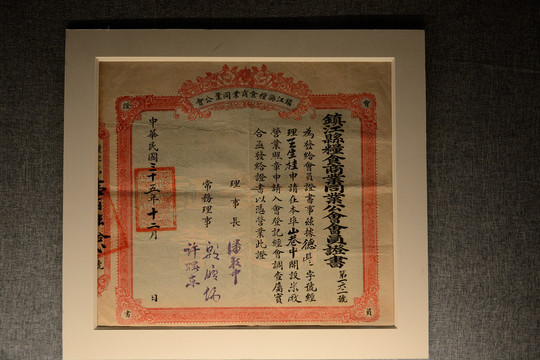 鎮江縣糧食商業同業公會
會員證書
鎮江縣糧食商業同業公會會員證書
第一六一號
為發給會員證書事茲據德
字號經
理王生桂申請在本埠山巷中開設米
營業照章申請入會登記經會調查屬實
合亟發給證書以憑營業此證
理事長
常務理事
中華民國三十五年十二月
日